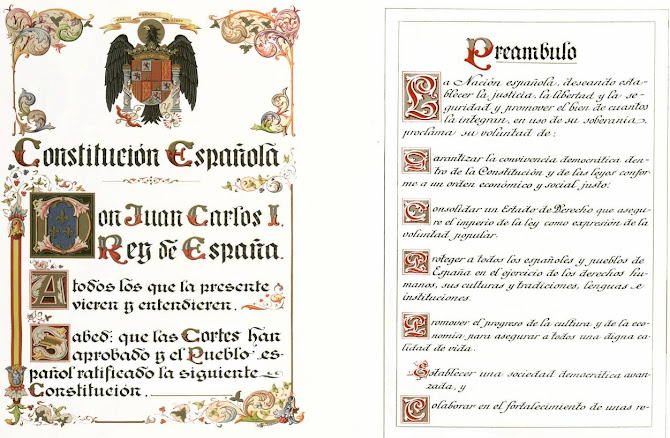 Constitución Española
Don Juan Carlos I.
Rey de España.
A todos los que la presente
vieren y entendieren.
Sabed: que las Cortes han
aprobado y el Pueblo es-
pañol ratificado la siguiente
Constitución.
Preambulo
La Nación española, deseando esta-
blecer la justicia, la libertad y la se-
guridad y promover el bien de cuantos
la integran, en uso de su soberania,
proclama su voluntad de:
Garantizar la convivencia democrática den-
tro de la Constitución y de las leyes confor-
me a un orden económico y social justo.
Consolidar un Estado de Derecho que asegu-
re el imperio de la ley como expresión de la
voluntad popular.
Proteger a todos los españoles y pueblos de
España en el ejercicio de los derechos hu-
manos, sus culturas y tradiciones, lenguas e
instituciones.
Promover el progreso de la cultura y de la eco-
nomía para asegurar a todos una digna ca-
lidad de vida.
Establecer una sociedad democrática avan-
zada, y
Colaborar en el fortalecimiento de unas re-